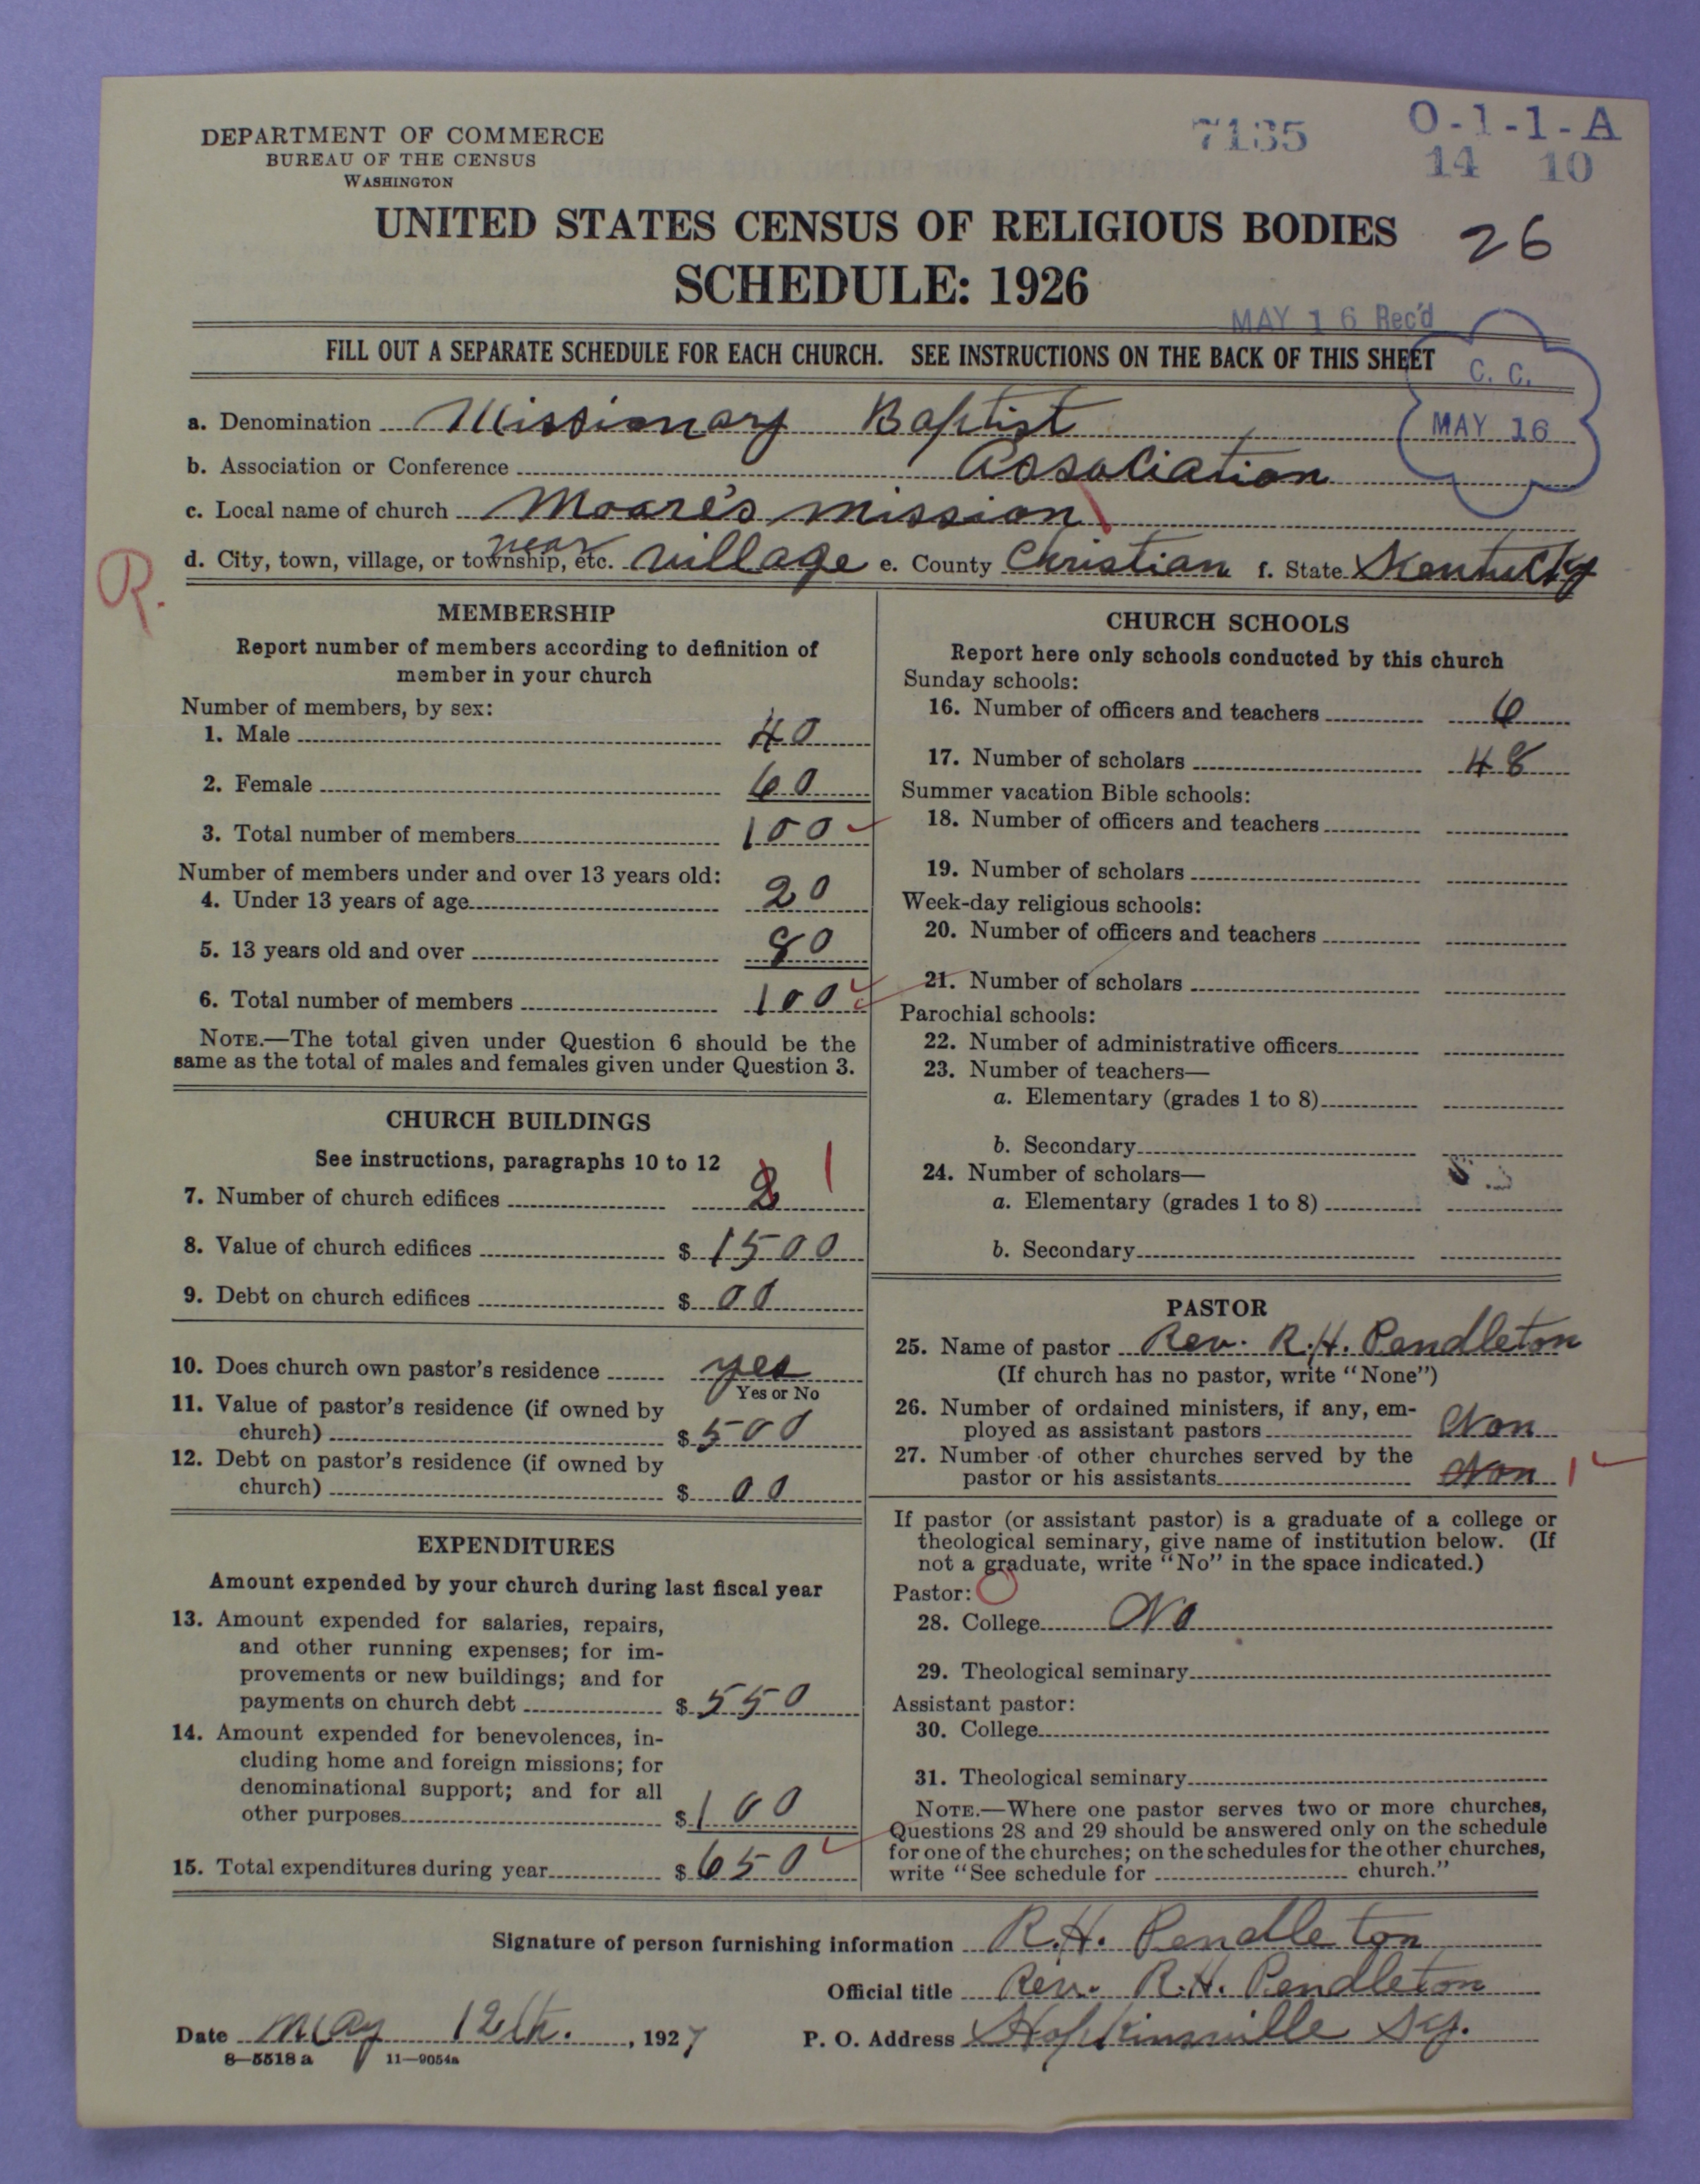 DEPARTMENT OF COMMERCE
BUREAU OF THE CENSUS
WASHINGTON
7135
O-1-1-A
14 10
UNITED STATES CENSUS OF RELIGIOUS BODIES
26
SCHEDULE: 1926
MAY 16 Rec'd
FILL OUT A SEPARATE SCHEDULE FOR EACH CHURCH. SEE INSTRUCTIONS ON THE BACK OF THIS SHEET
C. C.
MAY 16
a. Denomination Missionary Baptist
b. Association or Conference Association
c. Local name of church Moore's mission
d. City, town, village, or township, etc. near village e. County Christian f. State Kentucky
R.
MEMBERSHIP
Report number of members according to definition of
member in your church
Number of members, by sex:
1. Male 40
2. Female 60
3. Total number of members 100
Number of members under and over 13 years old:
4. Under 13 years of age 20
5. 13 years old and over 80
6. Total number of members 100
NOTE.—The total given under Question 6 should be the
same as the total of males and females given under Question 3.
CHURCH BUILDINGS
See instructions, paragraphs 10 to 12
7. Number of church edifices 2 1
8. Value of church edifices $ 1500
9. Debt on church edifices $ 00
10. Does church own pastor's residence yes
Yes or No
11. Value of pastor's residence (if owned by
church) $ 500
12. Debt on pastor's residence (if owned by
church) $ 00
EXPENDITURES
Amount expended by your church during last fiscal year
13. Amount expended for salaries, repairs,
and other running expenses; for im-
provements or new buildings; and for
payments on church debt $ 550
14. Amount expended for benevolences, in-
cluding home and foreign missions; for
denominational support; and for all
other purposes $ 100
15. Total expenditures during year $ 650
CHURCH SCHOOLS
Report here only schools conducted by this church
Sunday schools:
16. Number of officers and teachers 6
17. Number of scholars 48
Summer vacation Bible schools:
18. Number of officers and teachers
19. Number of scholars
Week-day religious schools:
20. Number of officers and teachers
21. Number of scholars
Parochial schools:
22. Number of administrative officers
23. Number of teachers—
a. Elementary (grades 1 to 8)
b. Secondary
24. Number of scholars—
a. Elementary (grades 1 to 8)
b. Secondary
PASTOR
25. Name of pastor Rev. R.H. Pendleton
(If church has no pastor, write "None")
26. Number of ordained ministers, if any, em-
ployed as assistant pastors Non
27. Number of other churches served by the
pastor or his assistants Non 1
If pastor (or assistant pastor) is a graduate of a college or
theological seminary, give name of institution below. (If
not a graduate, write "No" in the space indicated.)
Pastor:
28. College No
29. Theological seminary
Assistant pastor:
30. College
31. Theological seminary
NOTE.—Where one pastor serves two or more churches,
Questions 28 and 29 should be answered only on the schedule
for one of the churches; on the schedules for the other churches,
write "See schedule for church."
Signature of person furnishing information R.H. Pendleton
Official title Rev. R.H. Pendleton
Date May 12th. , 1927 P. O. Address Hopkinsville Ky.
8—5518 a 11—9054a